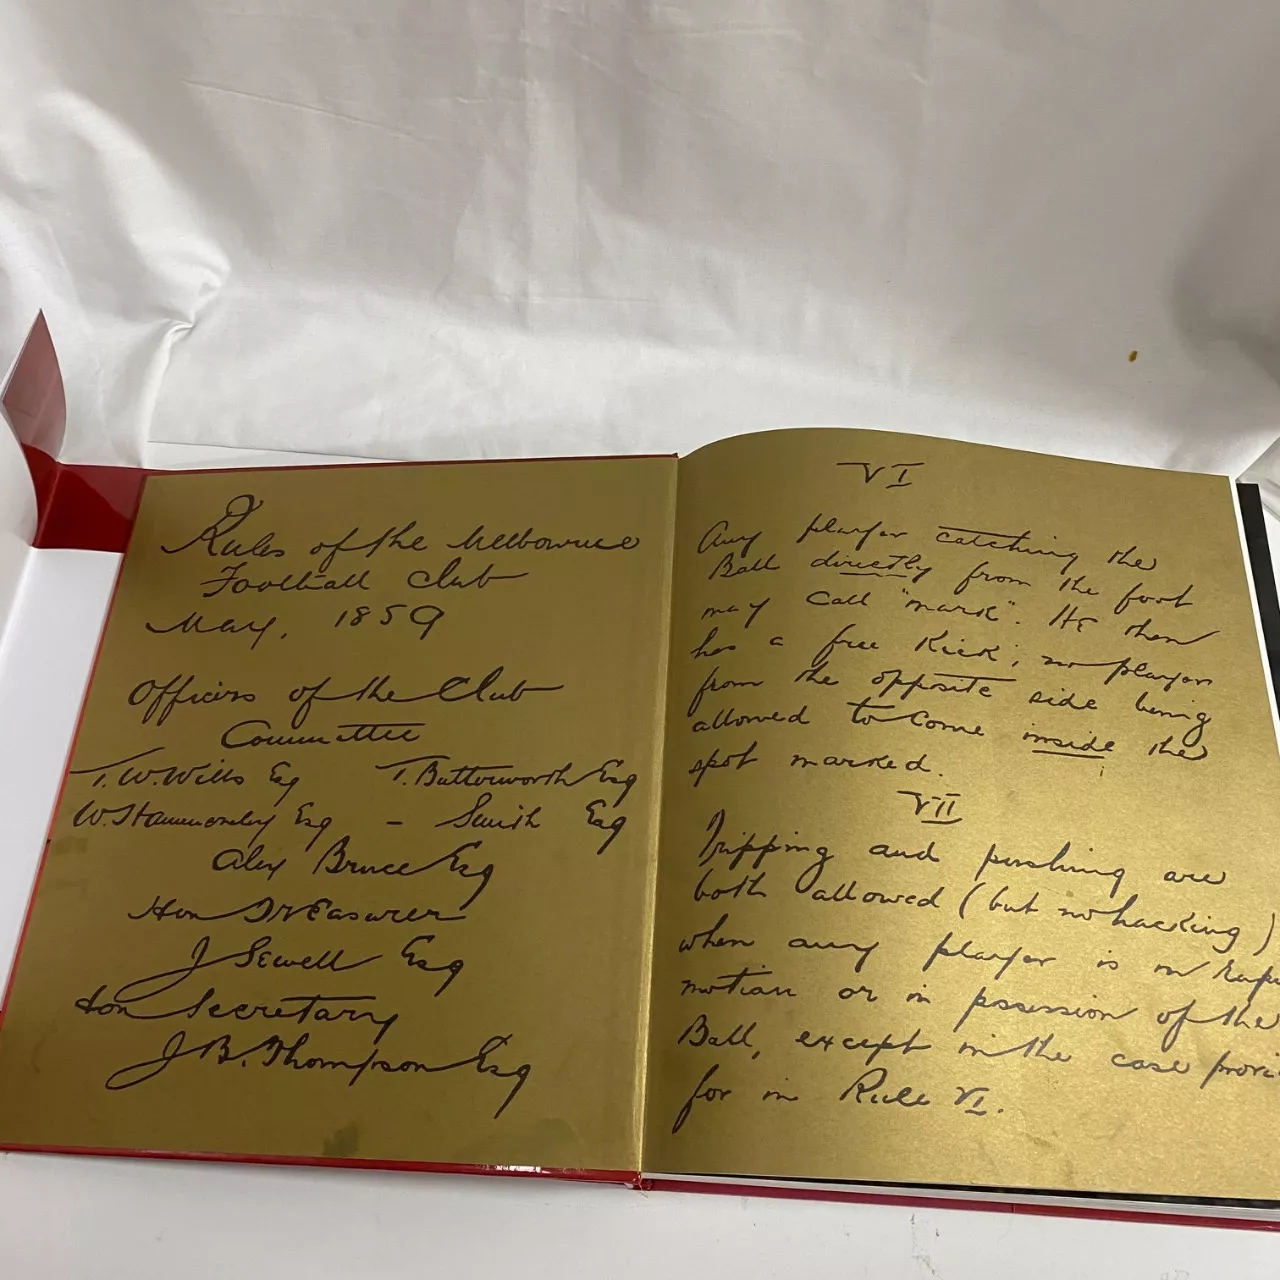 Rules of the Melbourne
Football Club
May, 1859
Officers of the Club
Committee
T. W. Wills Esq T. Butterworth Esq
W. Hammersley Esq - Smith Esq
Alex Bruce Esq
Hon Treasurer
J Sewell Esq
Hon Secretary
J B. Thompson Esq
VI
Any player catching the
Ball directly from the foot
may call "mark". He then
has a free kick; no player
from the opposite side being
allowed to come inside the
spot marked.
VII
Tripping and pushing are
both allowed (but no hacking)
when any player is in
motion or in possession of the
Ball, except in the case
for in Rule VI.